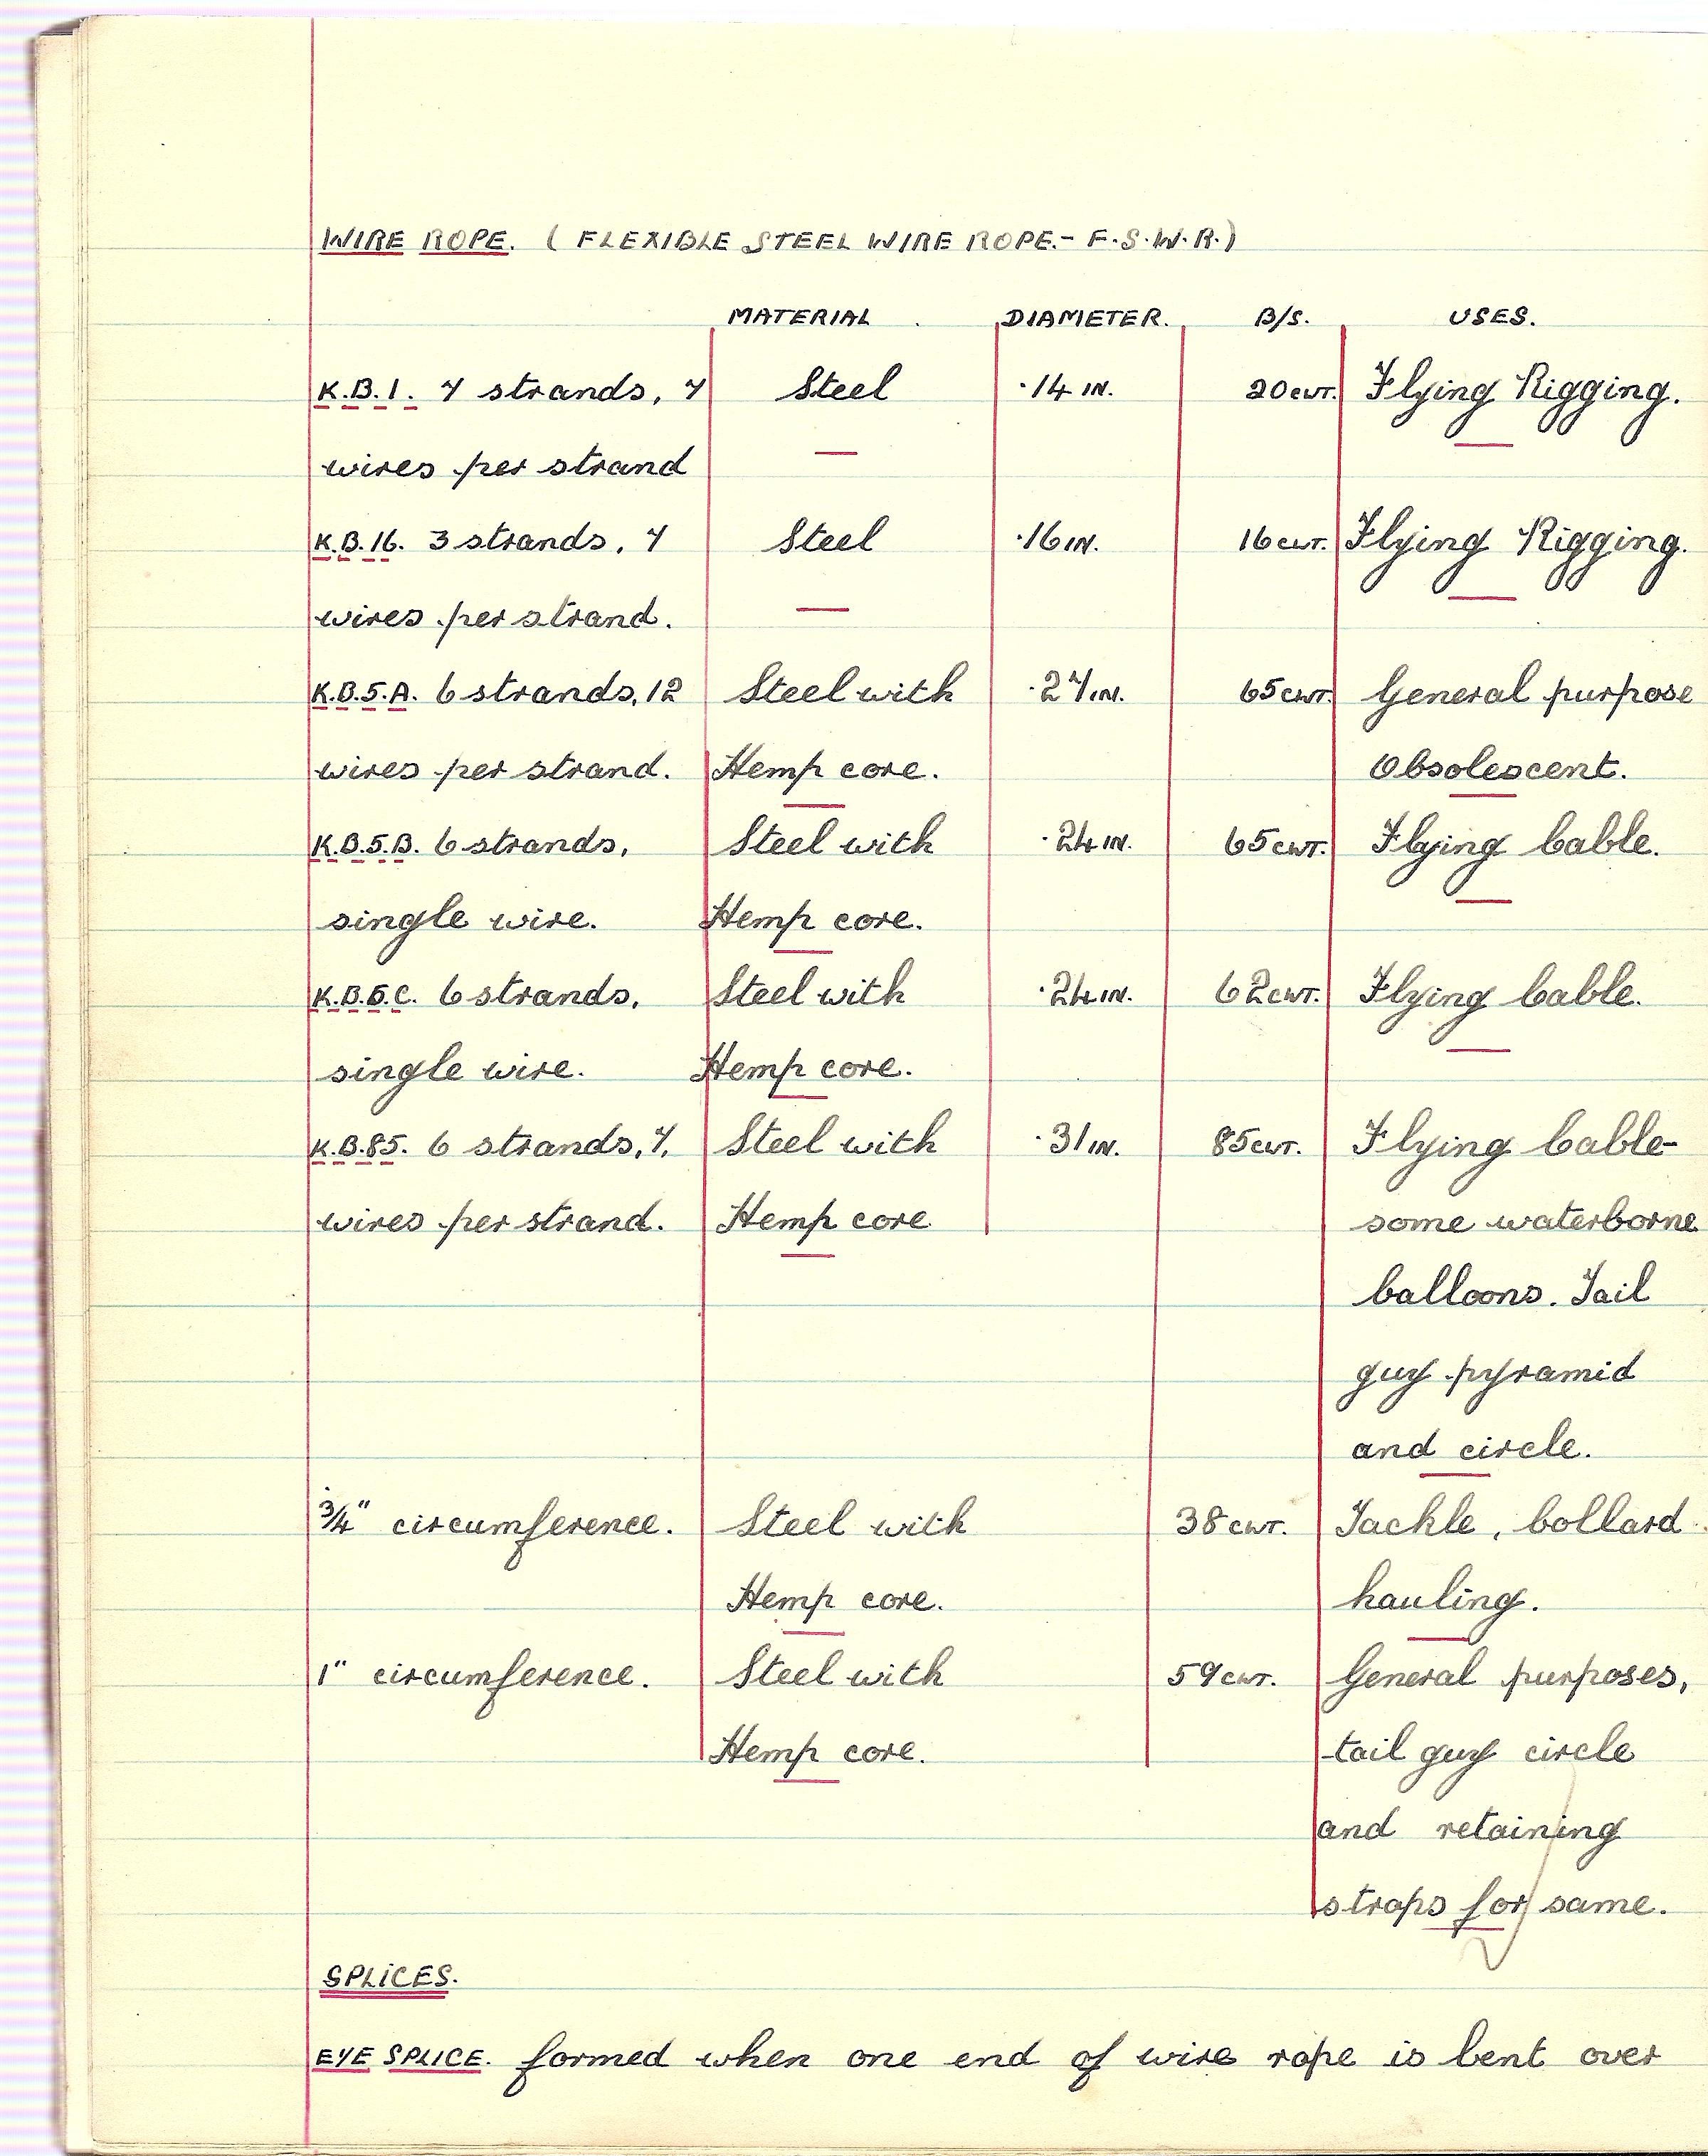 WIRE ROPE. (FLEXIBLE STEEL WIRE ROPE.- F.S.W.R.)
MATERIAL . DIAMETER. B/S. USES.
K.B.1. 7 strands, 7 Steel ·14 IN. 20 cwt. Flying Rigging.
wires per strand —
K.B.16. 3 strands, 7 Steel ·16 IN. 16 cwt. Flying Rigging.
wires per strand. —
K.B.5.A. 6 strands, 12 Steel with ·27 IN. 65 cwt. General purpose
wires per strand. Hemp core. Obsolescent.
K.B.5.B. 6 strands, Steel with ·24 IN. 65 cwt. Flying Cable.
single wire. Hemp core.
K.B.6.C. 6 strands, Steel with ·24 IN. 62 cwt. Flying Cable.
single wire. Hemp core.
K.B.85. 6 strands, 7, Steel with ·31 IN. 85 cwt. Flying Cable-
wires per strand. Hemp core some waterborne
balloons. Tail
guy pyramid
and circle.
3/4" circumference. Steel with 38 cwt. Tackle, bollard
Hemp core. hauling.
1" circumference. Steel with 59 cwt. General purposes,
Hemp core. tail guy circle
and retaining
straps for same.
SPLICES.
EYE SPLICE. formed when one end of wire rope is bent over